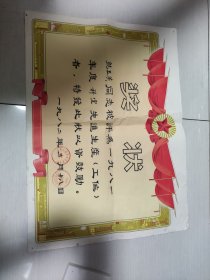 奖状
同志被评为一九八一
年度科室先进生产（工作）
者，特发此状以资鼓励。
一九八二年五月十八日